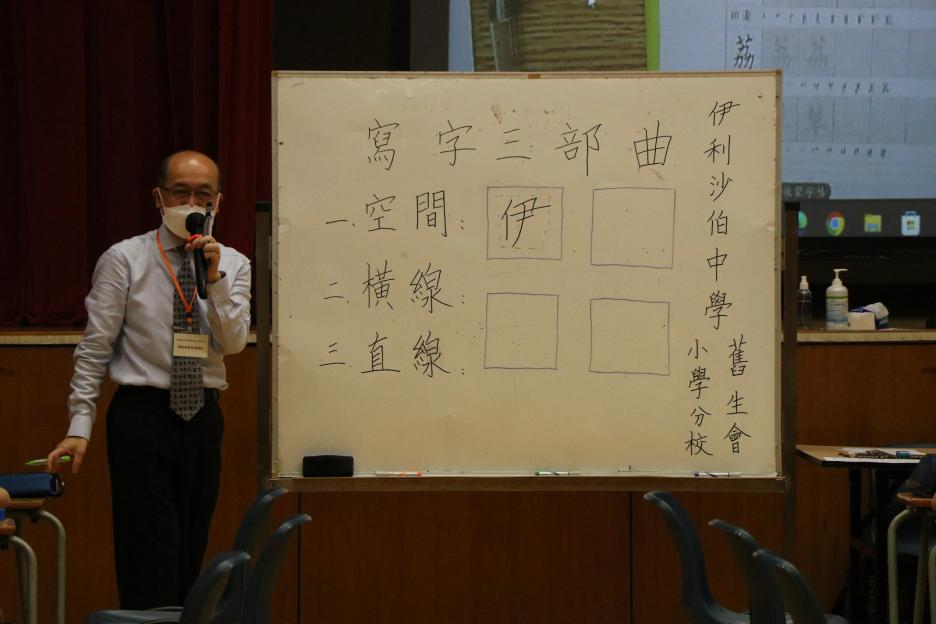 寫字三部曲
一、空間：
伊
二、橫線：
三、直線：
伊利沙伯中學
舊生會
小學分校
荔